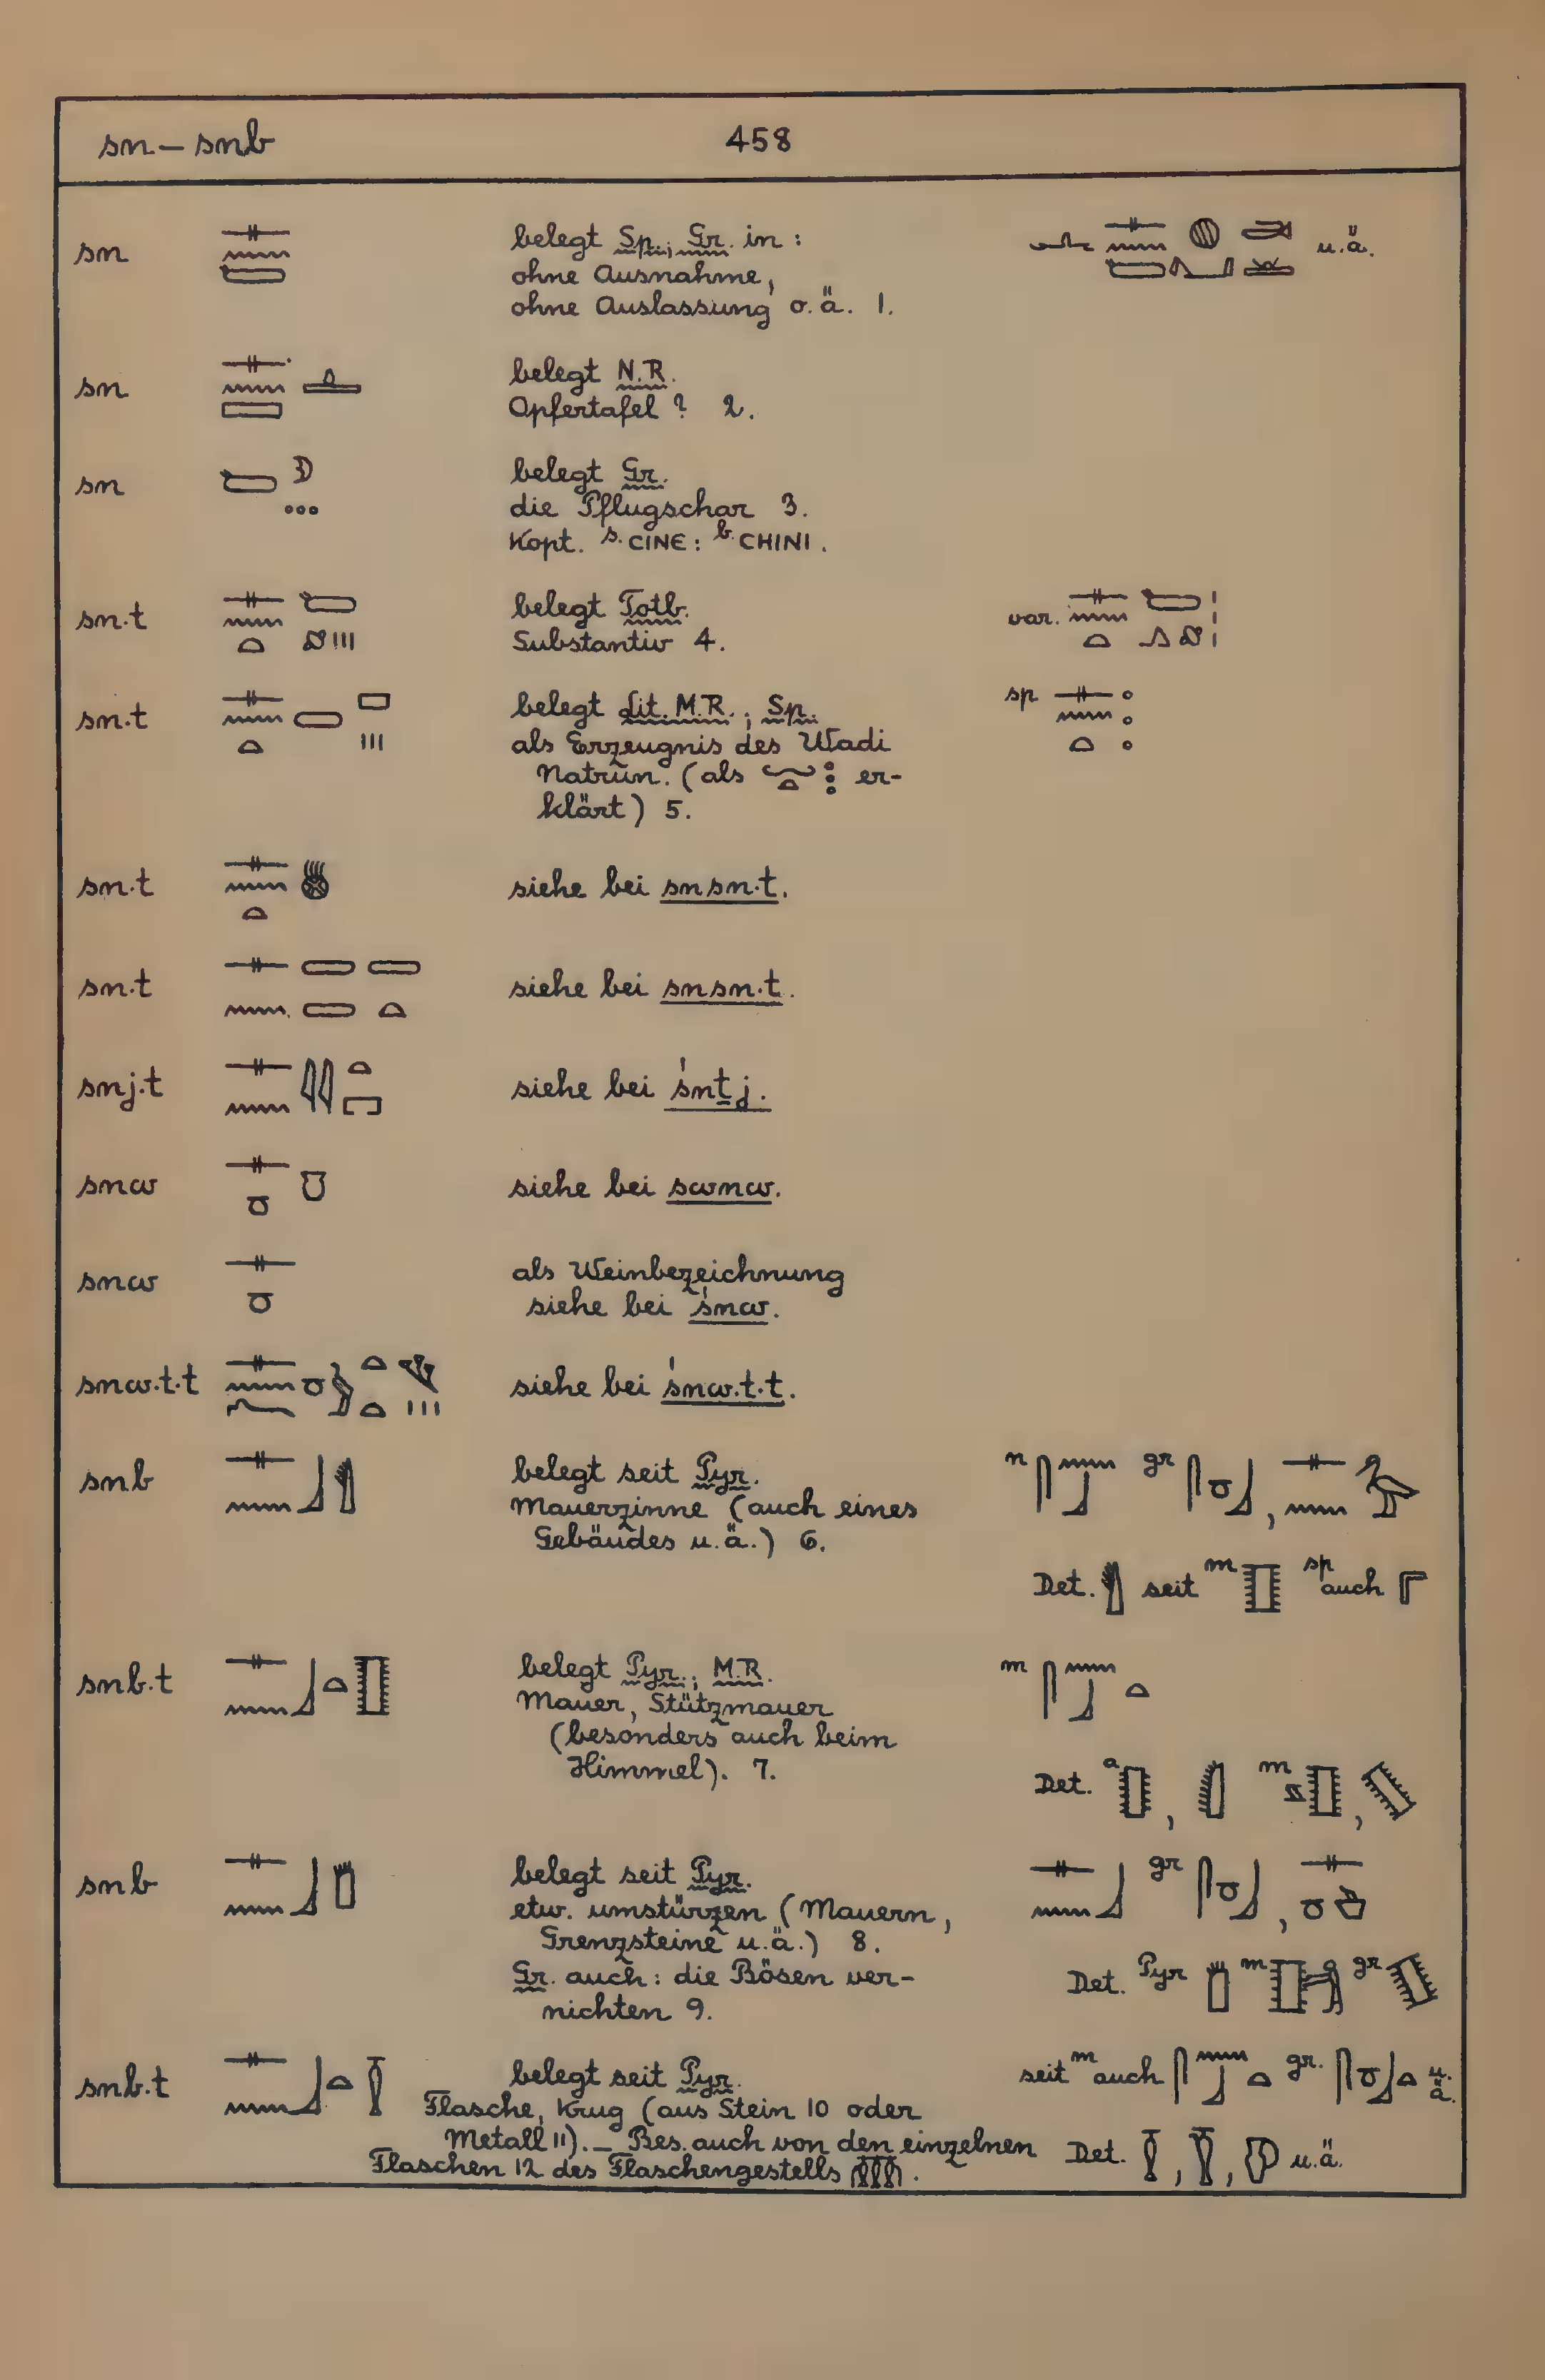 sn – snb 458
sn belegt Sp.; Gr. in: u.ä.
ohne Ausnahme,
ohne Auslassung o.ä. 1.
sn belegt N.R.
Opfertafel? 2.
sn belegt Gr.
die Pflugschar 3.
Kopt. s. CINE: b. CHINI.
sn.t belegt Totb. var.
Substantiv 4.
sn.t belegt Lit. M.R.; Sp. sp
als Erzeugnis des Wadi
Natrūn. (als er-
klärt) 5.
sn.t siehe bei snsn.t.
sn.t siehe bei snsn.t.
snj.t siehe bei śnṯj.
snw siehe bei swnw.
snw als Weinbezeichnung
siehe bei śnw.
snw.t.t siehe bei śnw.t.t.
snb belegt seit Pyr. n gr ,
Mauerzinne (auch eines
Gebäudes u.ä.) 6.
Det. seit m sp auch
snb.t belegt Pyr.; M.R. m
Mauer, Stützmauer
(besonders auch beim
Himmel). 7.
Det. a , m ,
snb belegt seit Pyr. gr ,
etw. umstürzen (Mauern,
Grenzsteine u.ä.) 8.
Gr. auch: die Bösen ver- Det. Pyr m gr
nichten 9.
snb.t belegt seit Pyr. seit m auch gr. u.ä.
Flasche, Krug (aus Stein 10 oder
Metall 11). – Bes. auch von den einzelnen Det. , , u.ä.
Flaschen 12 des Flaschengestells .